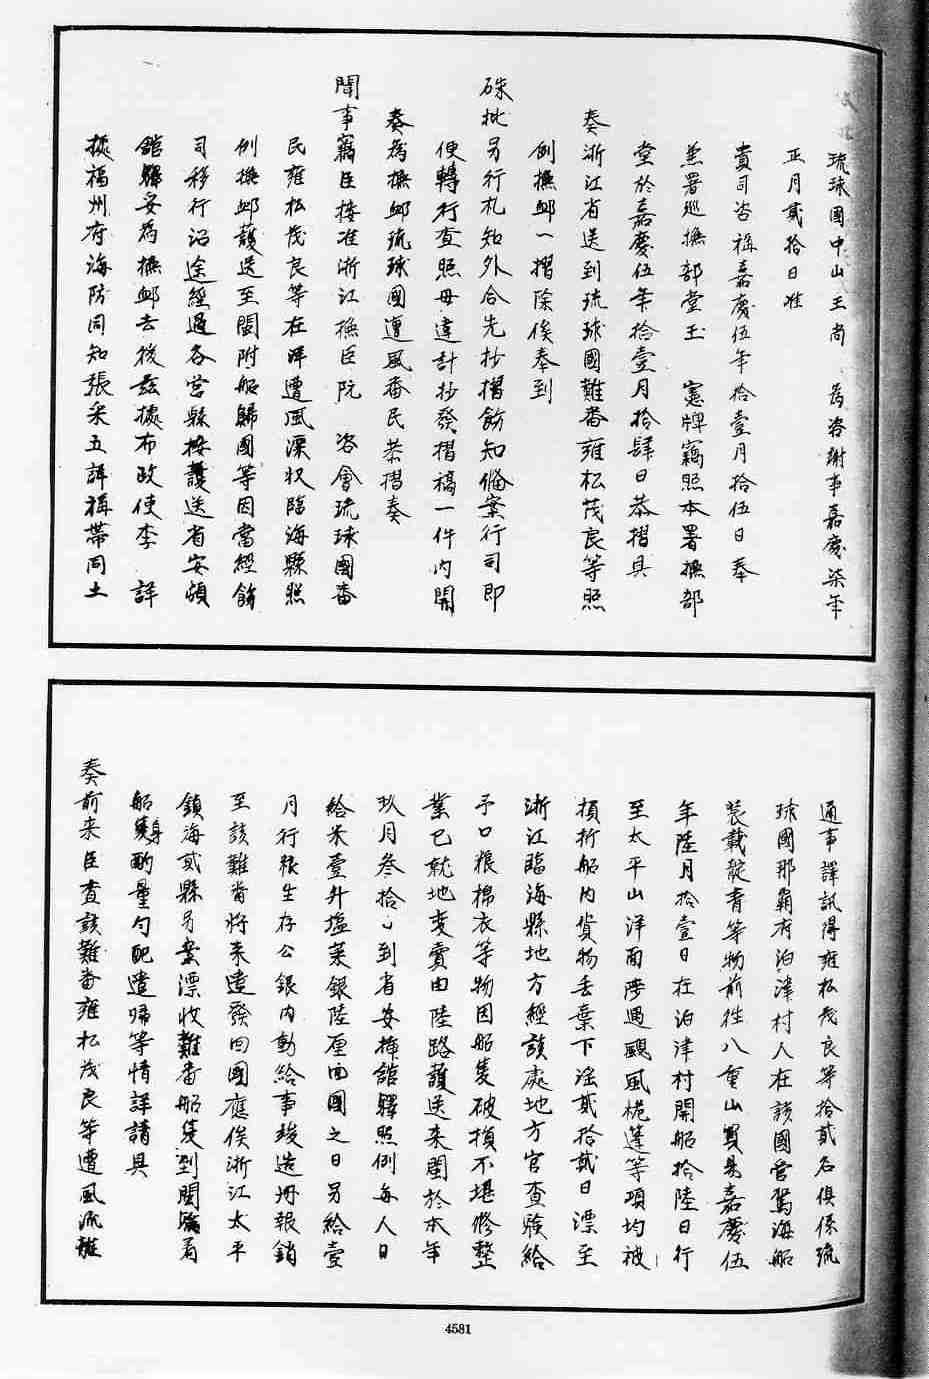 琉球國中山王尚　為咨謝事嘉慶柒年
正月貳拾日准
貴司咨稱嘉慶伍年拾壹月拾伍日奉
兼署巡撫部堂玉　憲牌竊照本署撫部
堂於嘉慶伍年拾壹月拾肆日恭摺具
奏浙江省送到琉球國難番雍松茂良等照
例撫卹一摺除俟奉到
硃批另行札知外合先抄摺飭知備案行司即
便轉行查照毋違計抄發摺稿一件內開
奏為撫卹琉球國遭風番民恭摺奏
聞事竊臣接准浙江撫臣阮　咨會琉球國番
民雍松茂良等在洋遭風漂收臨海縣照
例撫卹護送至閩附船歸國等因當經飭
司移行沿途經過各營縣接護送省安頓
館驛妥為撫卹去後茲據布政使李　詳
據福州府海防同知張采五詳稱帶同土
通事譯訊得雍松茂良等拾貳名俱係琉
球國那霸府泊津村人在該國官駕海船
裝載靛青等物前往八重山貿易嘉慶伍
年陸月拾壹日在泊津村開船拾陸日行
至太平山洋面陟遇颶風桅蓬等項均被
損折船內貨物丟棄下滛貳拾貳日漂至
浙江臨海縣地方經該處地方官查驗給
予口粮棉衣等物因船隻破損不堪修整
業已就地变賣由陸路護送来閩於本年
玖月叁拾日到省安揷館驛照例每人日
給米壹升塩菜銀陸厘回國之日另給壹
月行粮生存公銀內動給事竣造冊報銷
至該難番將来遣發回國應俟浙江太平
鎮海貳縣另案漂收難番船隻到閩驗看
船隻身酌量勻配遣歸等情詳請具
奏前来臣查該難番雍松茂良等遭風流離
4581